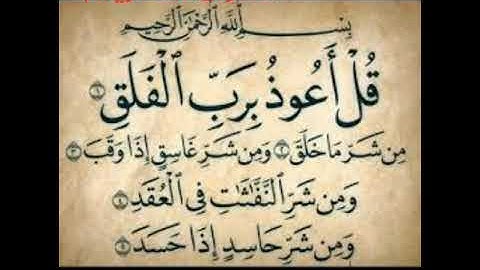 بِسْمِ اللَّهِ الرَّحْمَنِ الرَّحِيمِ
قُلْ أَعُوذُ بِرَبِّ الْفَلَقِ ١
مِن شَرِّ مَا خَلَقَ ٢ وَمِن شَرِّ غَاسِقٍ إِذَا وَقَبَ ٣
وَمِن شَرِّ النَّفَّاثَاتِ فِي الْعُقَدِ ٤
وَمِن شَرِّ حَاسِدٍ إِذَا حَسَدَ